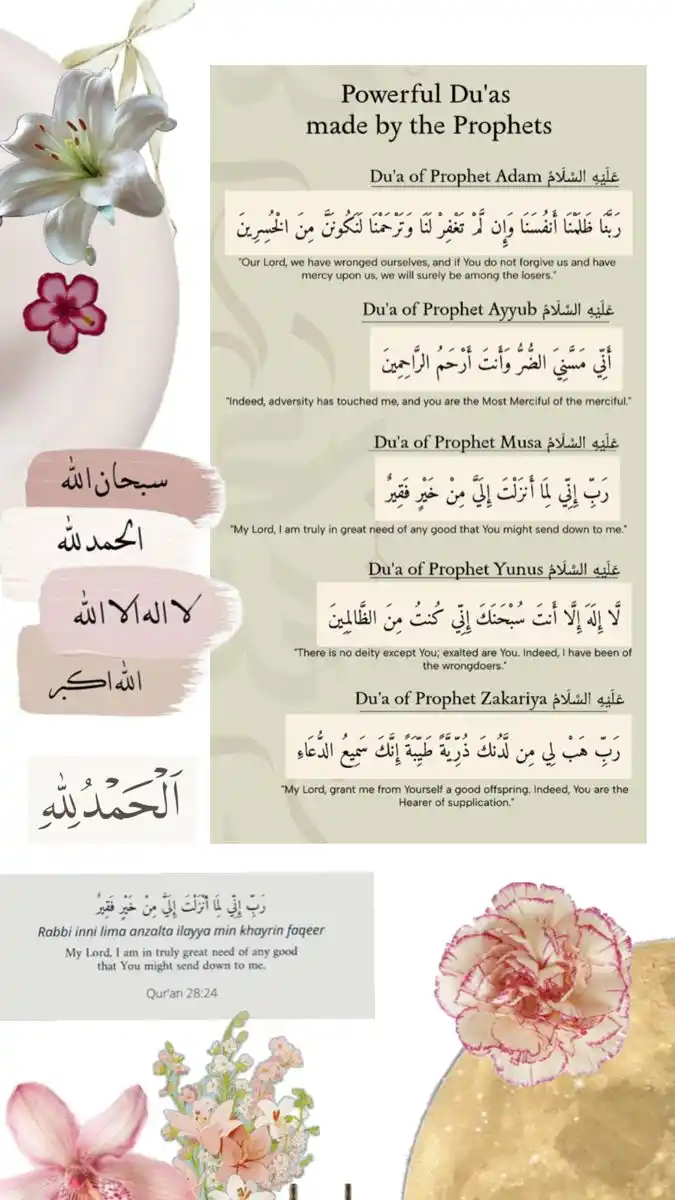 Powerful Du'as
made by the Prophets
Du'a of Prophet Adam عَلَيْهِ السَّلَامُ
رَبَّنَا ظَلَمْنَا أَنفُسَنَا وَإِن لَّمْ تَغْفِرْ لَنَا وَتَرْحَمْنَا لَنَكُونَنَّ مِنَ الْخَٰسِرِينَ
"Our Lord, we have wronged ourselves, and if You do not forgive us and have
mercy upon us, we will surely be among the losers."
Du'a of Prophet Ayyub عَلَيْهِ السَّلَامُ
أَنِّي مَسَّنِيَ الضُّرُّ وَأَنتَ أَرْحَمُ الرَّاحِمِينَ
"Indeed, adversity has touched me, and you are the Most Merciful of the merciful."
Du'a of Prophet Musa عَلَيْهِ السَّلَامُ
رَبِّ إِنِّي لِمَا أَنزَلْتَ إِلَيَّ مِنْ خَيْرٍ فَقِيرٌ
"My Lord, I am truly in great need of any good that You might send down to me."
Du'a of Prophet Yunus عَلَيْهِ السَّلَامُ
لَّا إِلَهَ إِلَّا أَنتَ سُبْحَنَكَ إِنِّي كُنتُ مِنَ الظَّالِمِينَ
"There is no deity except You; exalted are You. Indeed, I have been of
the wrongdoers."
Du'a of Prophet Zakariya عَلَيْهِ السَّلَامُ
رَبِّ هَبْ لِي مِن لَّدُنكَ ذُرِّيَّةً طَيِّبَةً إِنَّكَ سَمِيعُ الدُّعَاءِ
"My Lord, grant me from Yourself a good offspring. Indeed, You are the
Hearer of supplication."
سبحان الله
الحمد لله
لا اله الا الله
الله اكبر
اَلْحَمْدُ لِلّٰهِ
رَبِّ إِنِّي لِمَا أَنْزَلْتَ إِلَيَّ مِنْ خَيْرٍ فَقِيرٌ
Rabbi inni lima anzalta ilayya min khayrin faqeer
My Lord, I am in truly great need of any good
that You might send down to me.
Qur'an 28:24